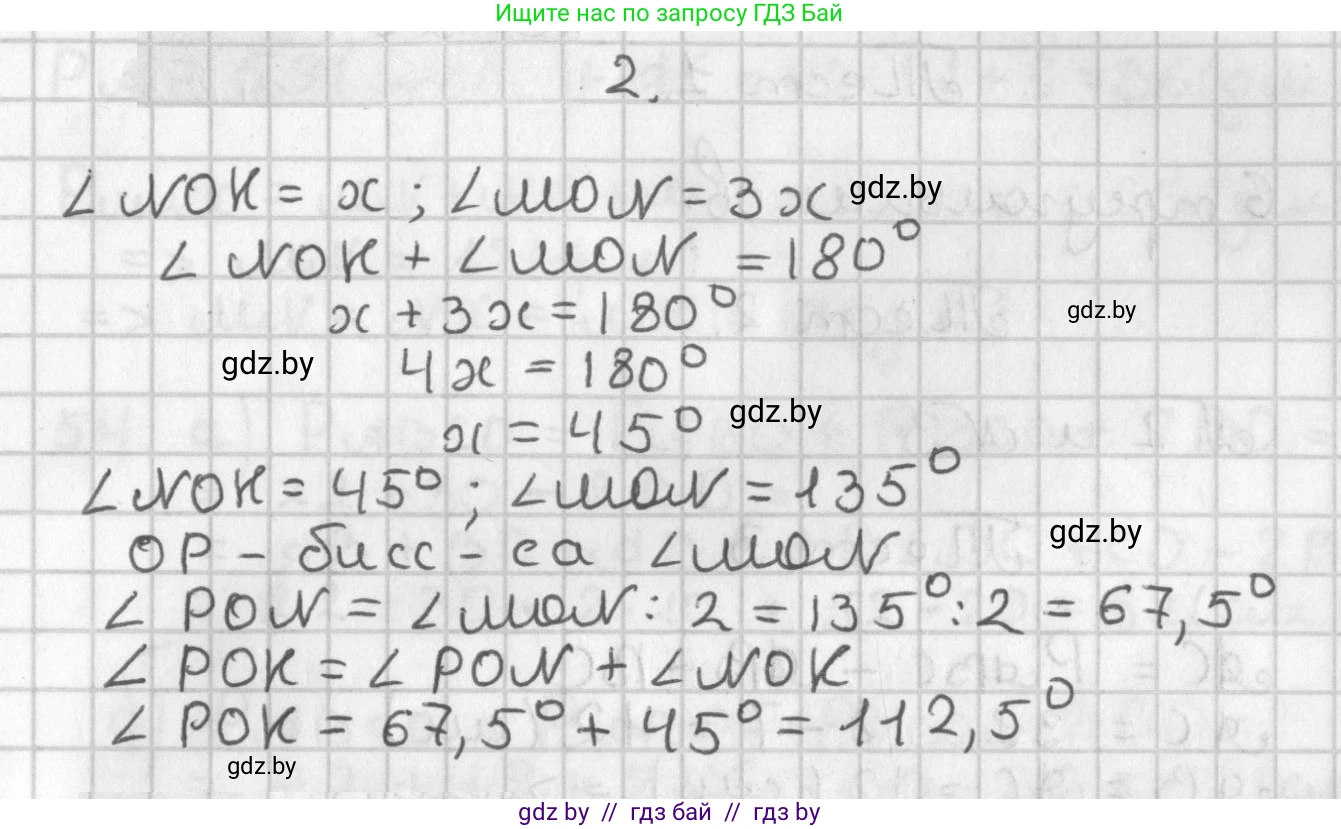 Ищите нас по запросу ГДЗ Бай
2.
∠NOK = x ; ∠MON = 3x gdz.by
∠NOK + ∠MON = 180°
x + 3x = 180° gdz.by
gdz.by 4x = 180°
x = 45° gdz.by
∠NOK = 45° ; ∠MON = 135°
OP - бисс-са ∠MON gdz.by
∠PON = ∠MON : 2 = 135° : 2 = 67,5°
∠POK = ∠PON + ∠NOK
∠POK = 67,5° + 45° = 112,5°
gdz.by
gdz by // гдз бай // гдз by